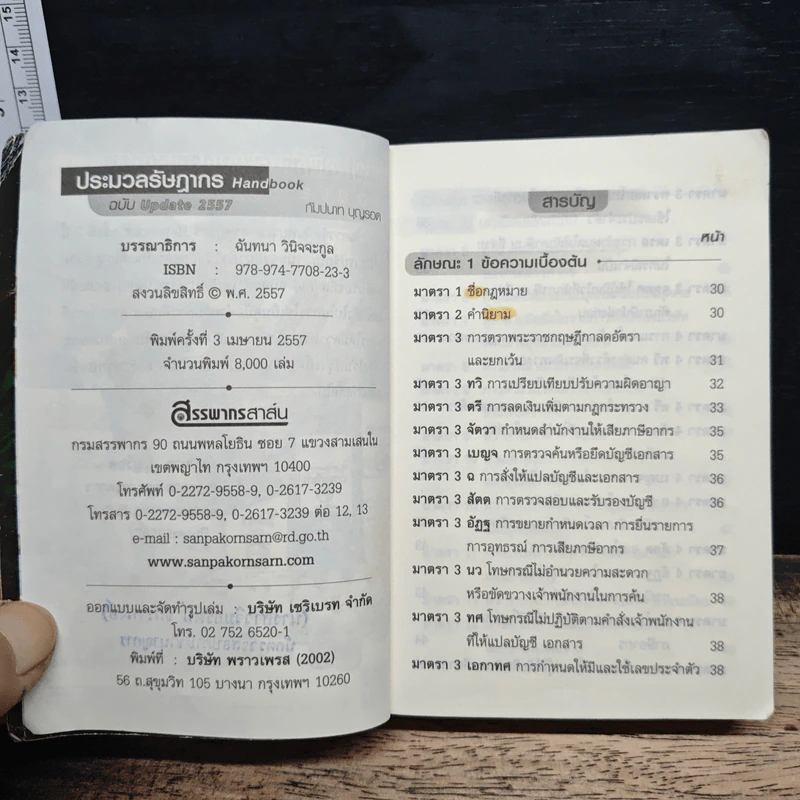 15
14
13
ประมวลรัษฎากร Handbook
ฉบับ Update 2557
กัมปนาท บุญรอด
บรรณาธิการ : ฉันทนา วินิจจะกูล
ISBN : 978-974-7708-23-3
สงวนลิขสิทธิ์ © พ.ศ. 2557
พิมพ์ครั้งที่ 3 เมษายน 2557
จำนวนพิมพ์ 8,000 เล่ม
สรรพากรสาส์น
กรมสรรพากร 90 ถนนพหลโยธิน ซอย 7 แขวงสามเสนใน
เขตพญาไท กรุงเทพฯ 10400
โทรศัพท์ 0-2272-9558-9, 0-2617-3239
โทรสาร 0-2272-9558-9, 0-2617-3239 ต่อ 12, 13
e-mail : sanpakornsarn@rd.go.th
www.sanpakornsarn.com
ออกแบบและจัดทำรูปเล่ม : บริษัท เซริเบรท จำกัด
โทร. 02 752 6520-1
พิมพ์ที่ : บริษัท พราวเพรส (2002)
56 ถ.สุขุมวิท 105 บางนา กรุงเทพฯ 10260
สารบัญ
หน้า
ลักษณะ 1 ข้อความเบื้องต้น
มาตรา 1 ชื่อกฎหมาย 30
มาตรา 2 คำนิยาม 30
มาตรา 3 การตราพระราชกฤษฎีกาลดอัตรา
และยกเว้น 31
มาตรา 3 ทวิ การเปรียบเทียบปรับความผิดอาญา 32
มาตรา 3 ตรี การลดเงินเพิ่มตามกฎกระทรวง 33
มาตรา 3 จัตวา กำหนดสำนักงานให้เสียภาษีอากร 35
มาตรา 3 เบญจ การตรวจค้นหรือยึดบัญชีเอกสาร 35
มาตรา 3 ฉ การสั่งให้แปลบัญชีและเอกสาร 36
มาตรา 3 สัตต การตรวจสอบและรับรองบัญชี 36
มาตรา 3 อัฏฐ การขยายกำหนดเวลา การยื่นรายการ
การอุทธรณ์ การเสียภาษีอากร 37
มาตรา 3 นว โทษกรณีไม่อำนวยความสะดวก
หรือขัดขวางเจ้าพนักงานในการค้น 38
มาตรา 3 ทศ โทษกรณีไม่ปฏิบัติตามคำสั่งเจ้าพนักงาน
ที่ให้แปลบัญชี เอกสาร 38
มาตรา 3 เอกาทศ การกำหนดให้มีและใช้เลขประจำตัว 38